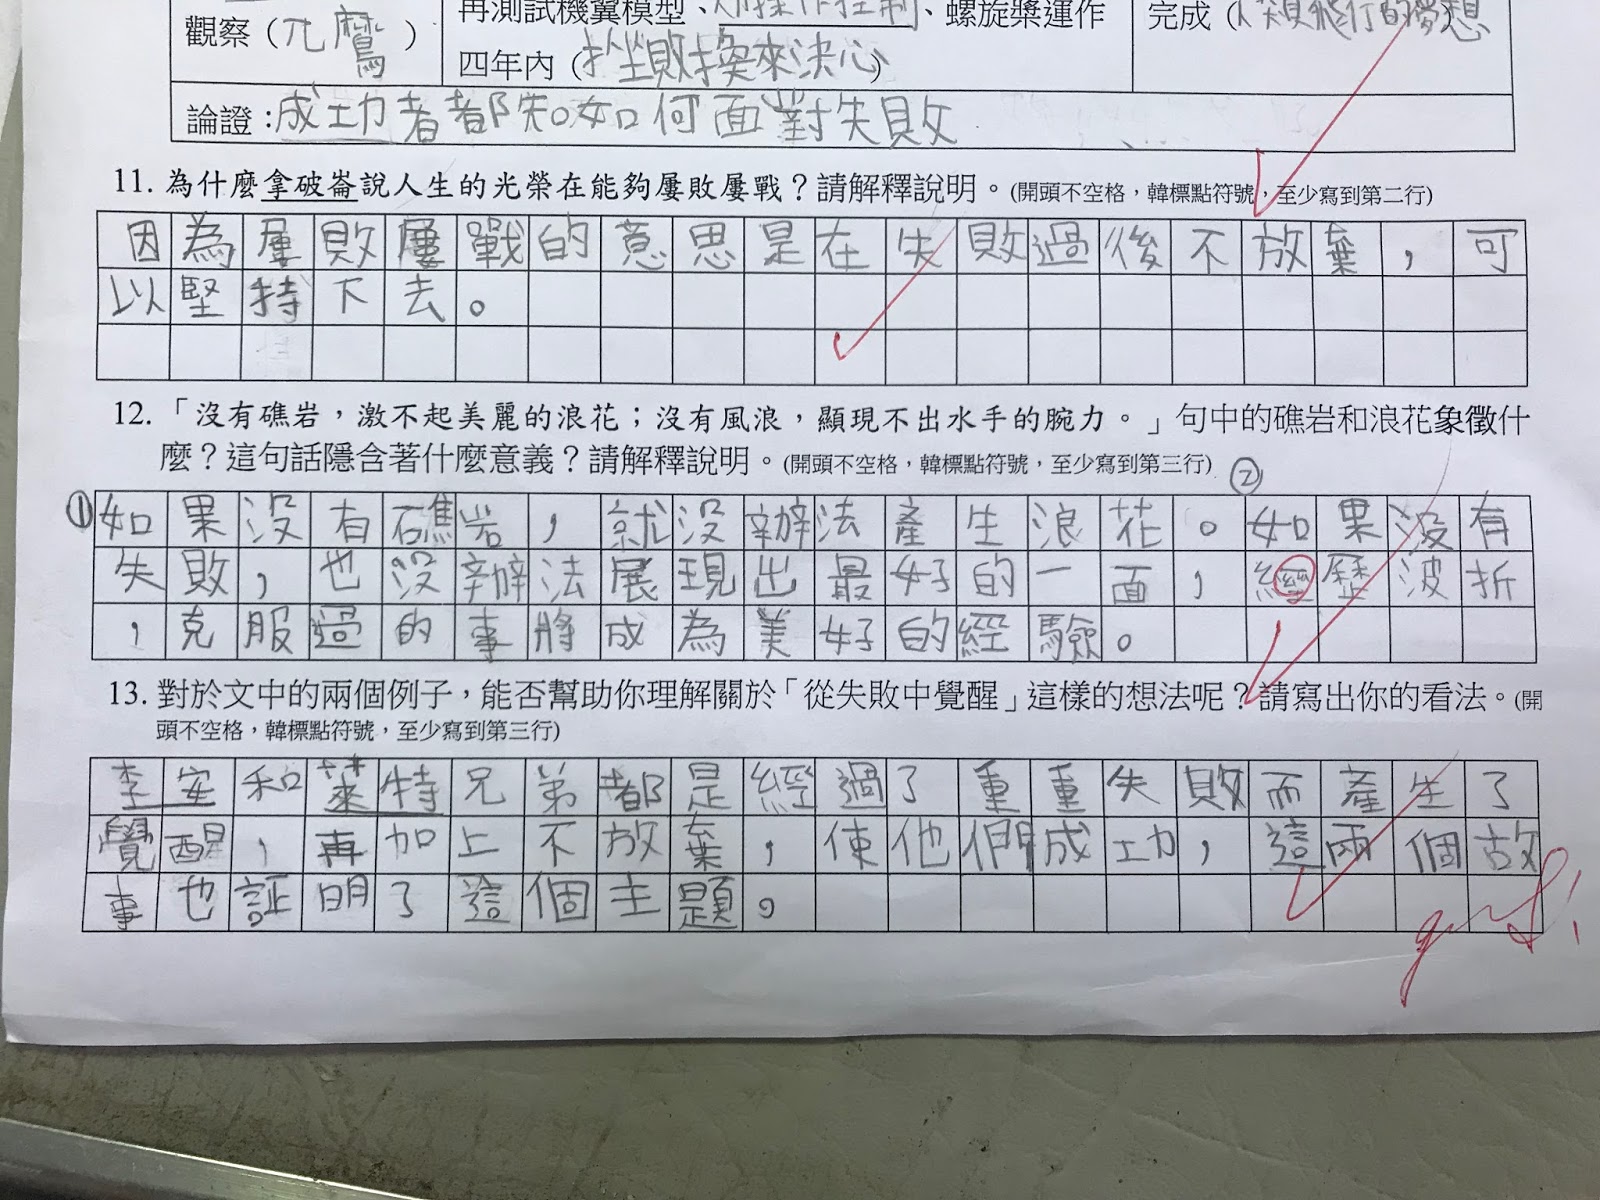 再測試機翼模型、操作控制、螺旋槳運作
觀察(兀鷹)
四年內(挫敗換來決心)
完成(人類飛行的夢想
論證:成功者都知如何面對失敗
11. 為什麼拿破崙說人生的光榮在能夠屢敗屢戰?請解釋說明。(開頭不空格,韓標點符號,至少寫到第二行)
因為屢敗屢戰的意思是在失敗過後不放棄,可
以堅持下去。
12.「沒有礁岩,激不起美麗的浪花;沒有風浪,顯現不出水手的腕力。」句中的礁岩和浪花象徵什
麼?這句話隱含著什麼意義?請解釋說明。(開頭不空格,韓標點符號,至少寫到第三行)
①如果沒有礁岩,就沒辦法產生浪花。②如果沒有
失敗,也沒辦法展現出最好的一面,經歷波折
,克服過的事將成為美好的經驗。
13. 對於文中的兩個例子,能否幫助你理解關於「從失敗中覺醒」這樣的想法呢?請寫出你的看法。(開
頭不空格,韓標點符號,至少寫到第三行)
李安和萊特兄弟都是經過了重重失敗而產生了
覺醒,再加上不放棄,使他們成功,這兩個故
事也証明了這個主題。
good!